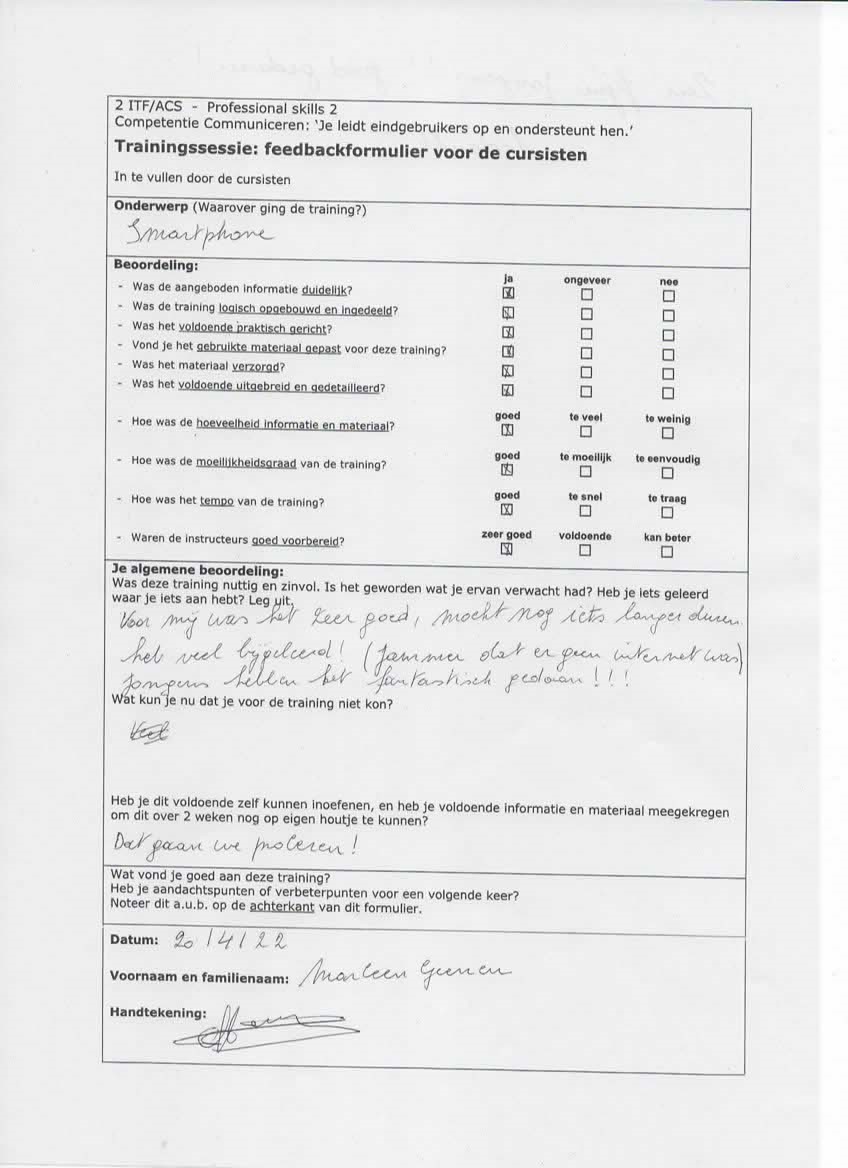 2 ITF/ACS - Professional skills 2
Competentie Communiceren: 'Je leidt eindgebruikers op en ondersteunt hen.'
Trainingssessie: feedbackformulier voor de cursisten
In te vullen door de cursisten
Onderwerp (Waarover ging de training?)
Smartphone
Beoordeling:
ja ongeveer nee
- Was de aangeboden informatie duidelijk?
- Was de training logisch opgebouwd en ingedeeld?
- Was het voldoende praktisch gericht?
- Vond je het gebruikte materiaal gepast voor deze training?
- Was het materiaal verzorgd?
- Was het voldoende uitgebreid en gedetailleerd?
goed te veel te weinig
- Hoe was de hoeveelheid informatie en materiaal?
goed te moeilijk te eenvoudig
- Hoe was de moeilijkheidsgraad van de training?
goed te snel te traag
- Hoe was het tempo van de training?
zeer goed voldoende kan beter
- Waren de instructeurs goed voorbereid?
Je algemene beoordeling:
Was deze training nuttig en zinvol. Is het geworden wat je ervan verwacht had? Heb je iets geleerd
waar je iets aan hebt? Leg uit.
Voor mij was het zeer goed, mocht nog iets langer duren
heb veel bijgeleerd! (Jammer dat er geen internet was)
Jongens hebben het fantastisch gedaan!!!
Wat kun je nu dat je voor de training niet kon?
Heb je dit voldoende zelf kunnen inoefenen, en heb je voldoende informatie en materiaal meegekregen
om dit over 2 weken nog op eigen houtje te kunnen?
Dat gaan we proberen!
Wat vond je goed aan deze training?
Heb je aandachtspunten of verbeterpunten voor een volgende keer?
Noteer dit a.u.b. op de achterkant van dit formulier.
Datum: 20/4/22
Voornaam en familienaam: Marleen Geenen
Handtekening: